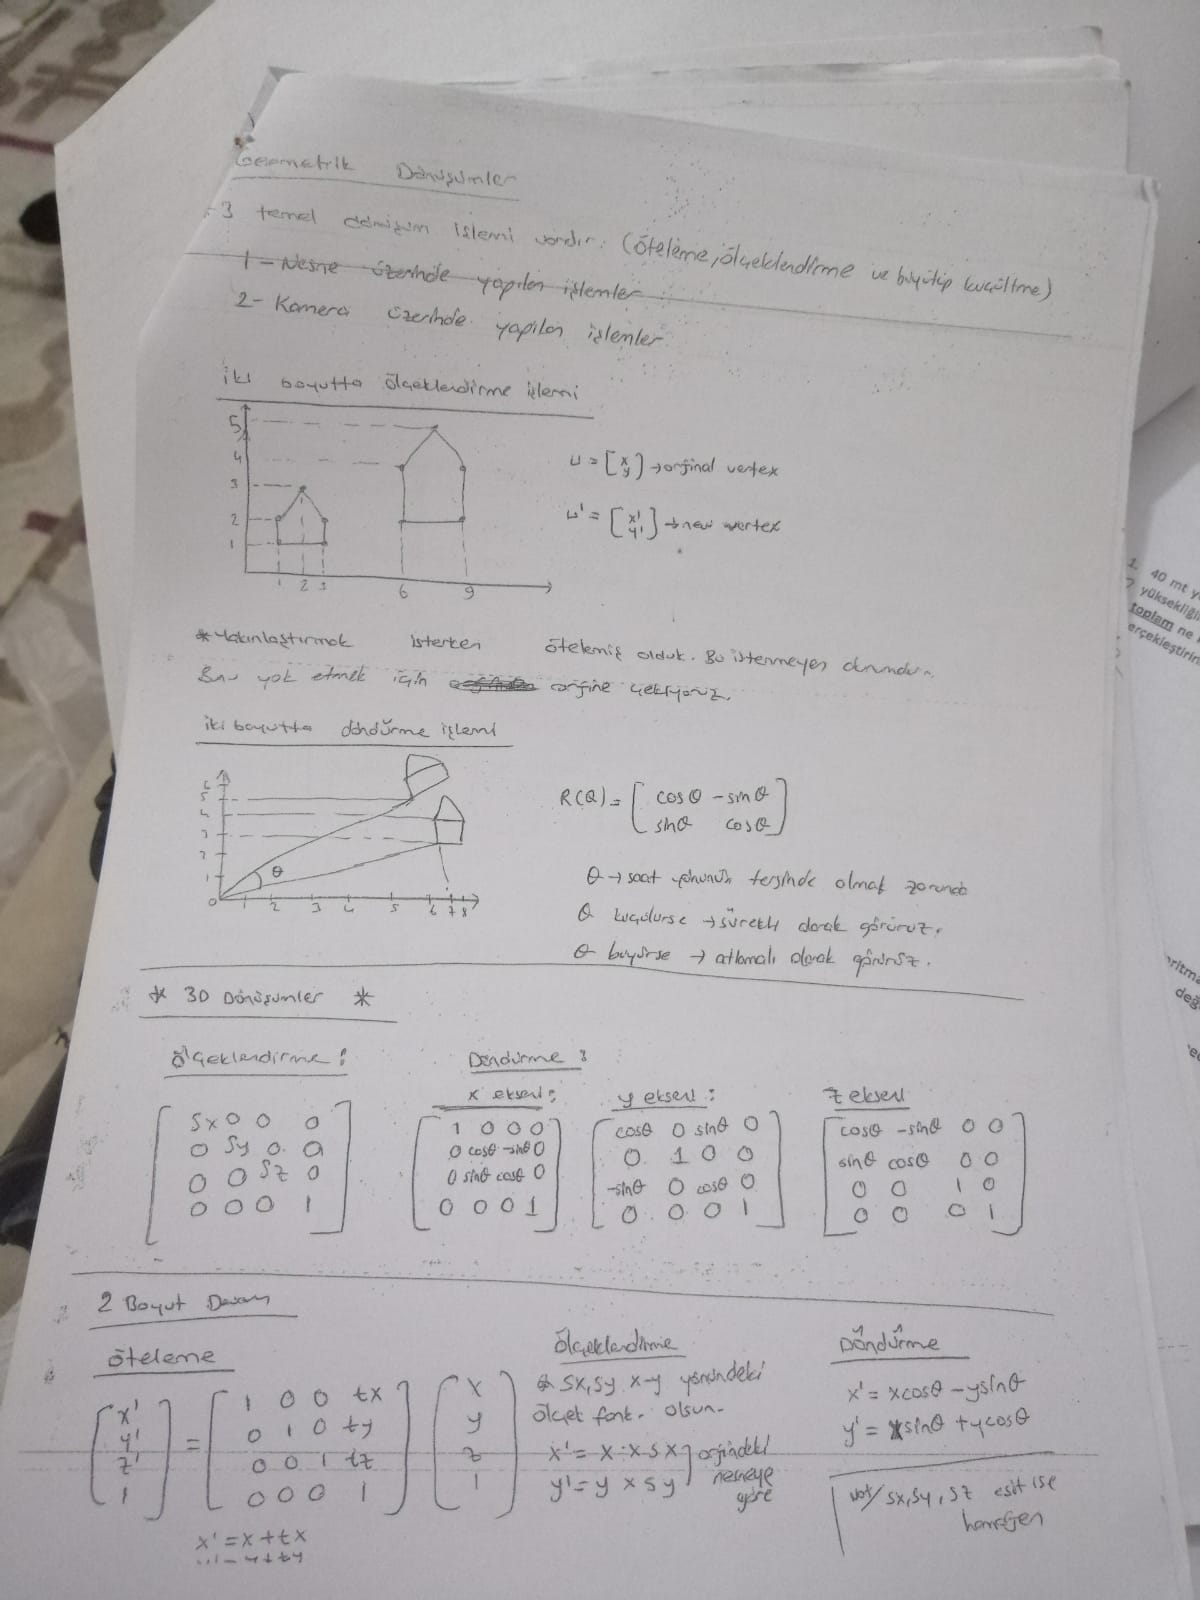 Geometrik Dönüşümler
- 3 temel dönüşüm işlemi vardır. (öteleme, ölçeklendirme ve büyütüp küçültme)
1 - Nesne üzerinde yapılan işlemler
2 - Kamera üzerinde yapılan işlemler
iki boyutta ölçeklendirme işlemi
5
4
3
2
1
1 2 3 6 9
u = [x y] → orjinal vertex
u' = [x' y'] → new vertex
* Yakınlaştırmak isterken ötelemiş olduk. Bu istenmeyen durumdur.
Bunu yok etmek için orjine çekiyoruz.
iki boyutta döndürme işlemi
6
5
4
3
2
1
θ
0 1 2 3 4 5 6 7 8
R(θ) = [ cosθ -sinθ
sinθ cosθ ]
θ → saat yönünün tersinde olmak zorunda
θ küçülürse → sürekli olarak görürüz.
θ büyürse → atlamalı olarak görürüz.
* 3D Dönüşümler *
ölçeklendirme :
Sx 0 0 0
0 Sy 0 0
0 0 Sz 0
0 0 0 1
Döndürme :
x ekseni :
1 0 0 0
0 cosθ -sinθ 0
0 sinθ cosθ 0
0 0 0 1
y ekseni :
cosθ 0 sinθ 0
0 1 0 0
-sinθ 0 cosθ 0
0 0 0 1
z ekseni
cosθ -sinθ 0 0
sinθ cosθ 0 0
0 0 1 0
0 0 0 1
2 Boyut Devam
öteleme
[x' y' z' 1] =
1 0 0 tx
0 1 0 ty
0 0 1 tz
0 0 0 1
[x y z 1]
x' = x + tx
y' = y + ty
Ölçeklendirme
Sx, Sy x-y yönündeki
ölçek fonk. olsun.
x' = x × Sx
y' = y × Sy
orjindeki
nesneye
göre
Döndürme
x' = xcosθ - ysinθ
y' = xsinθ + ycosθ
not/ Sx, Sy, Sz eşit ise
homojen
1. 40 mt y
yüksekliği
toplam ne
erçekleştirin
ritma
değ